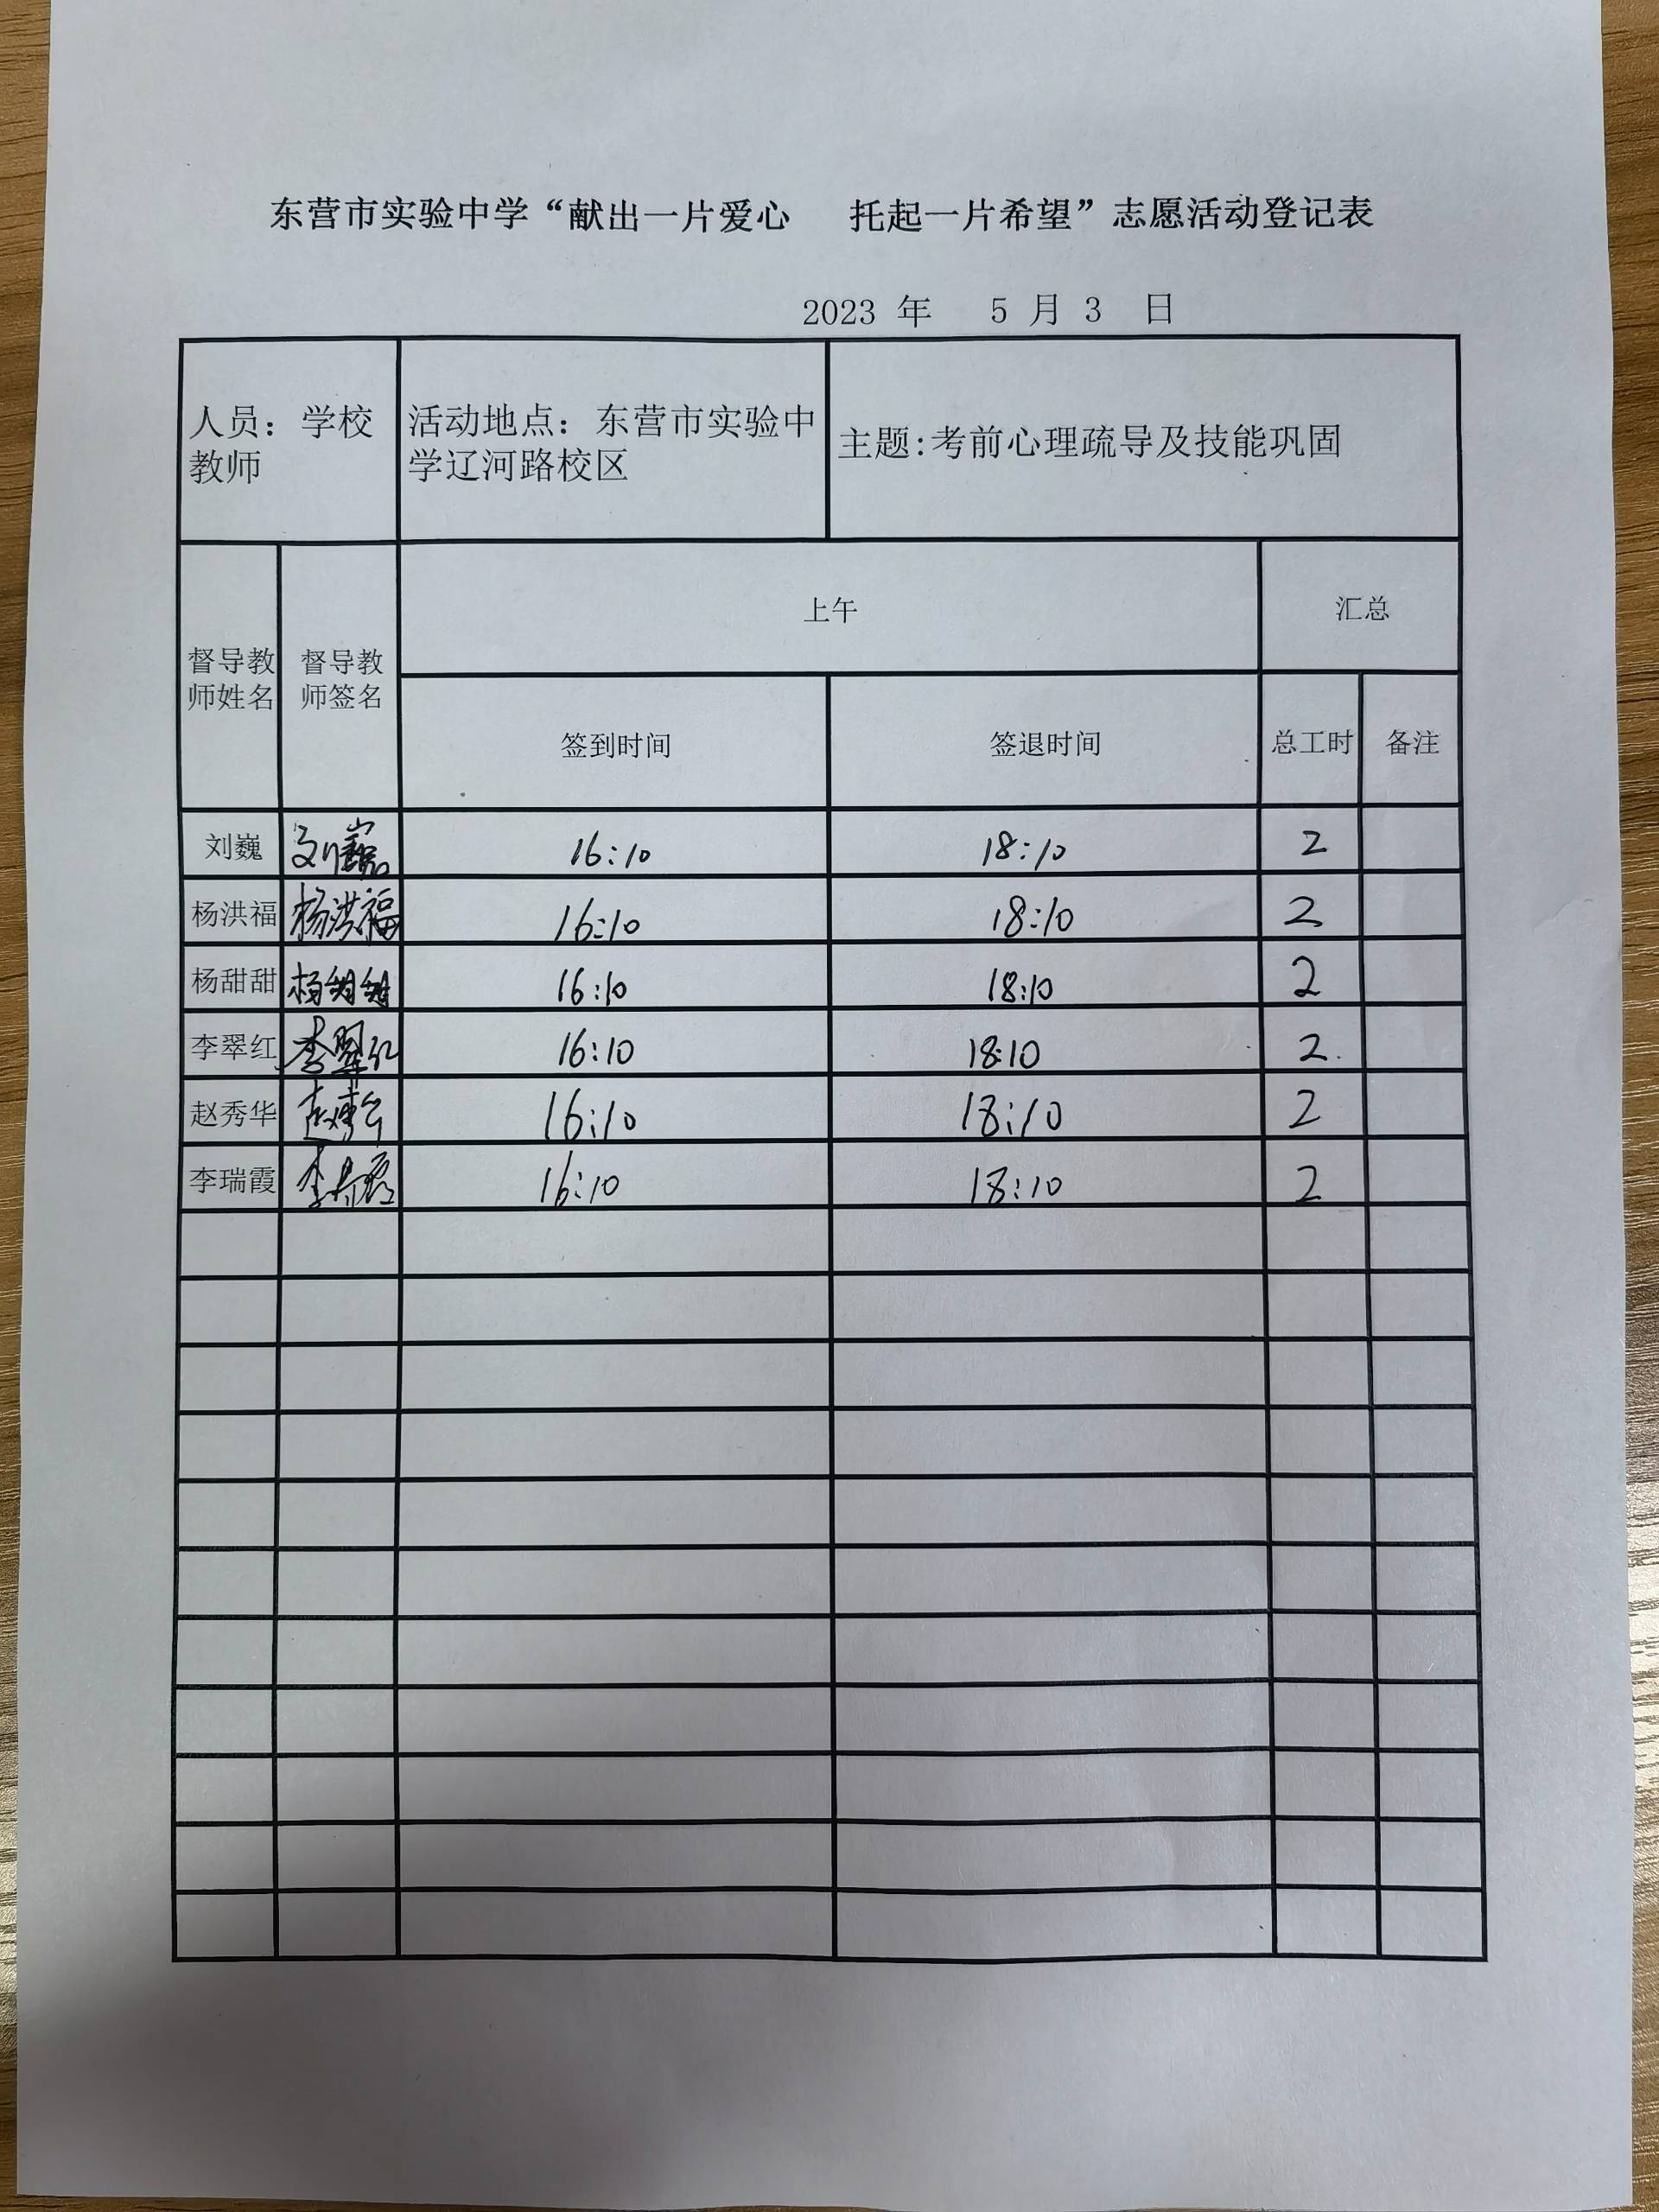 东营市实验中学“献出一片爱心 托起一片希望”志愿活动登记表
2023 年 5 月 3 日
人员：学校
教师
活动地点：东营市实验中
学辽河路校区
主题:考前心理疏导及技能巩固
督导教
师姓名
督导教
师签名
上午
汇总
签到时间
签退时间
总工时
备注
刘巍 刘巍 16:10 18:10 2
杨洪福 杨洪福 16:10 18:10 2
杨甜甜 杨甜甜 16:10 18:10 2
李翠红 李翠红 16:10 18:10 2
赵秀华 赵秀华 16:10 18:10 2
李瑞霞 李瑞霞 16:10 18:10 2